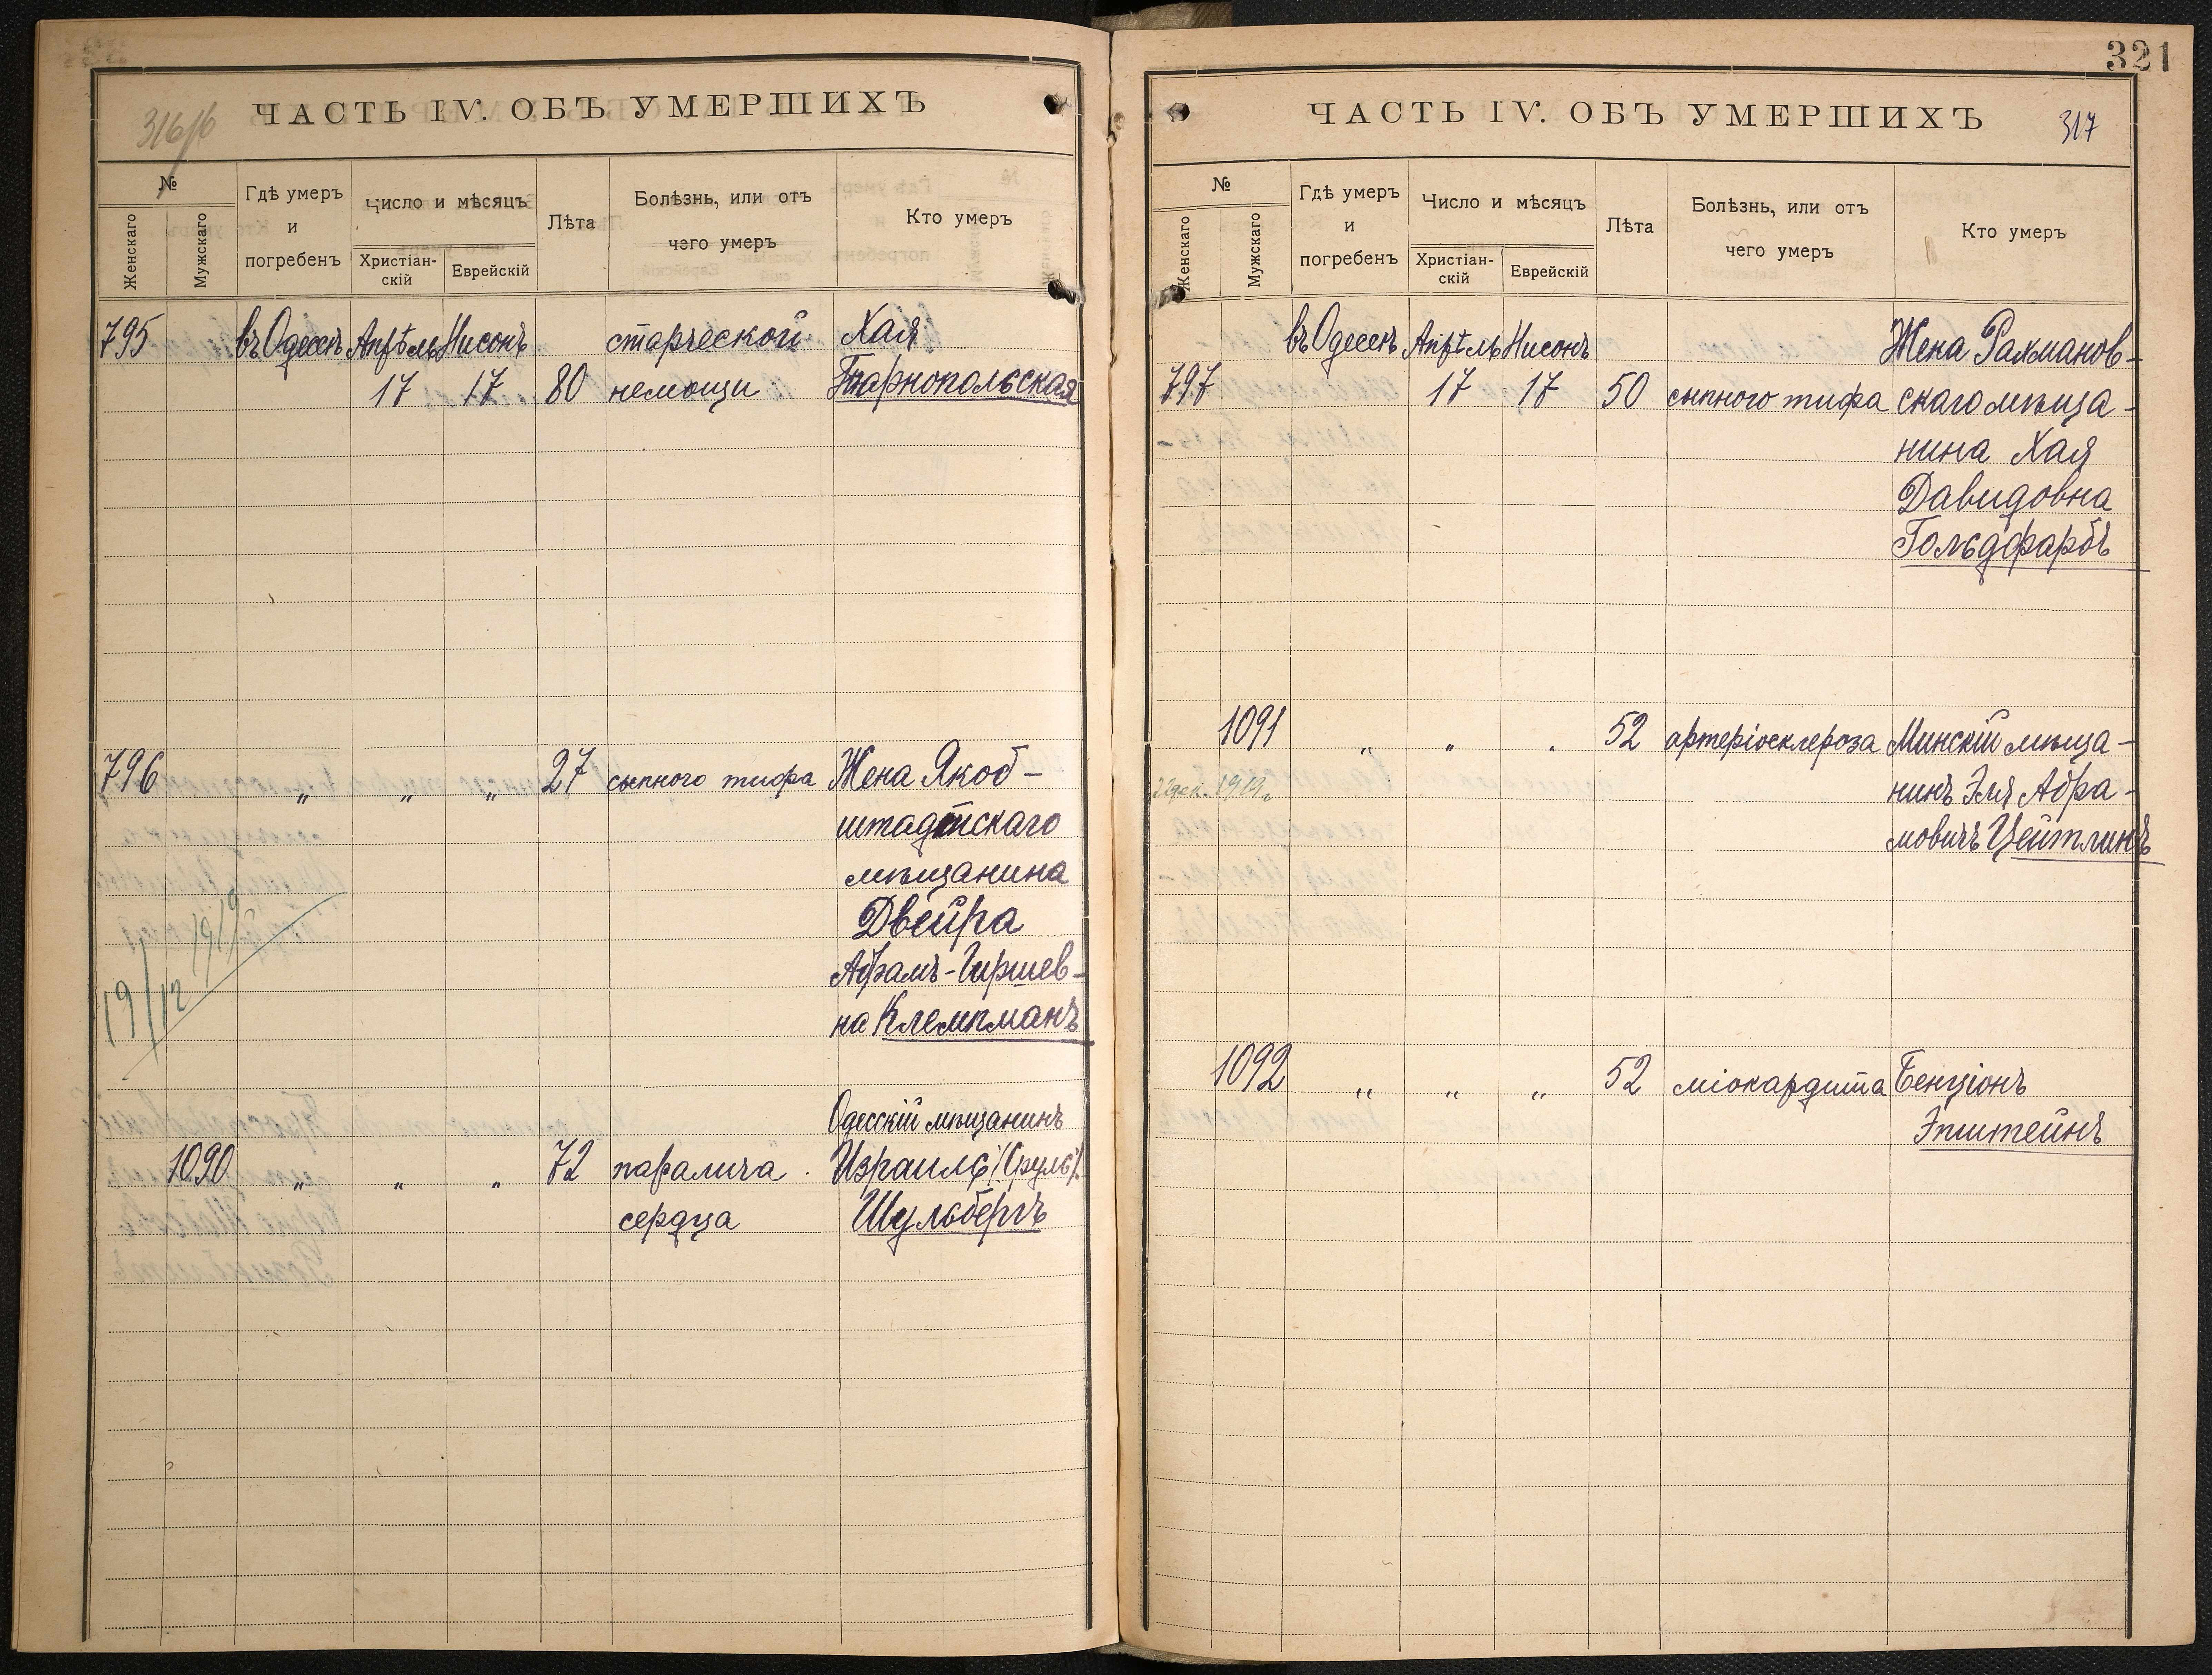 316/6
ЧАСТЬ IV. ОБЪ УМЕРШИХЪ
№
Женскаго
Мужскаго
Гдѣ умеръ
и
погребенъ
Число и мѣсяцъ
Христіан-
скій
Еврейскій
Лѣта
Болѣзнь, или отъ
чего умеръ
Кто умеръ
795 въ Одессѣ Апрѣль Нисонъ старческой Хая
17 17 80 немощи Тарнопольская
796 „ „ „ 27 сыпного тифа Жена Якоб-
штадтскаго
мѣщанина
Двейра
Абрамъ-Гиршев-
на Клемпманъ
19/12 1919
Одесскій мѣщанинъ
1090 „ „ „ 72 паралича Израиль /Сруль/
сердца Шульбергъ
321
ЧАСТЬ IV. ОБЪ УМЕРШИХЪ
317
№
Женскаго
Мужскаго
Гдѣ умеръ
и
погребенъ
Число и мѣсяцъ
Христіан-
скій
Еврейскій
Лѣта
Болѣзнь, или отъ
чего умеръ
Кто умеръ
въ Одессѣ Апрѣль Нисонъ Жена Рахманов-
797 17 17 50 сыпного тифа скаго мѣща-
нина Хая
Давидовна
Гольдфарбъ
1091 „ „ „ 52 артеріосклероза Минскій мѣща-
1919г. нинъ Эля Абра-
мовичъ Цейтлинъ
1092 „ „ „ 52 міокардита Бенціонъ
Эпштейнъ